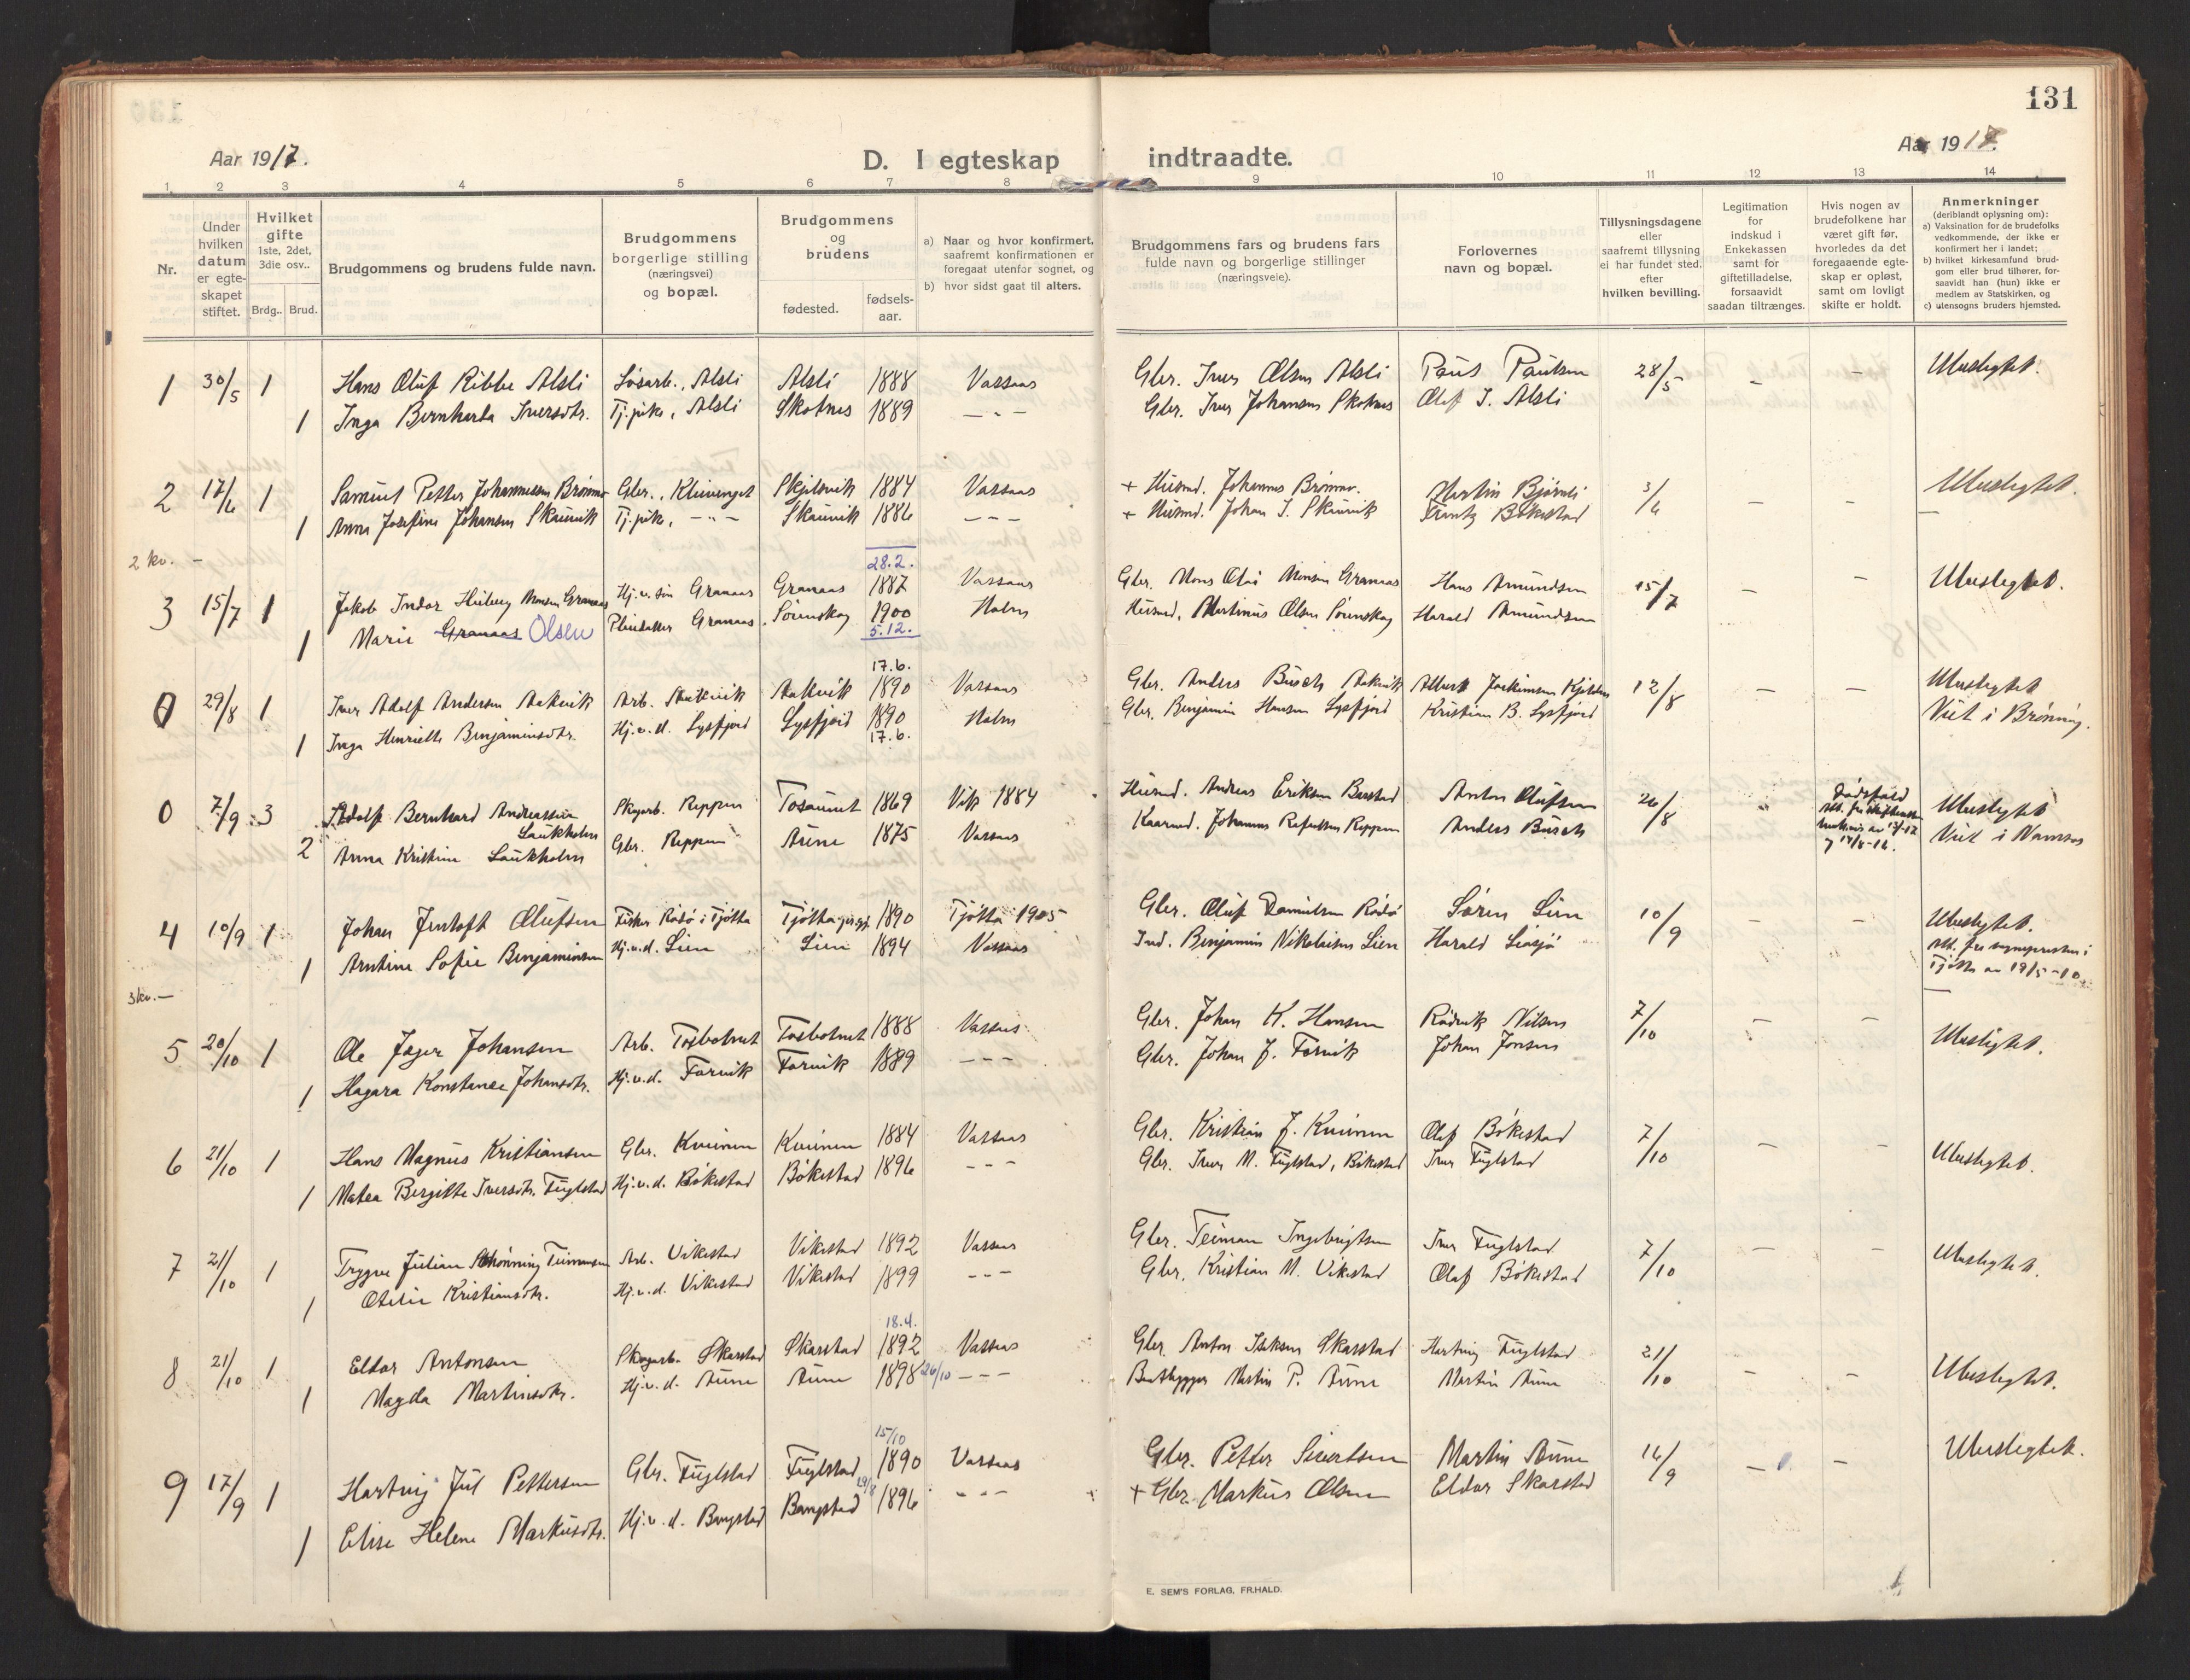 131
Aar 1917.
D. I egteskap indtraadte.
Aar 1917.
1. 2 3 4 5 6 7 8 9 10 11 12 13 14
Nr.
Under hvilken datum er egteskapet stiftet.
Hvilket gifte 1ste, 2det, 3die osv..
Brdg.. Brud.
Brudgommens og brudens fulde navn.
Brudgommens borgerlige stilling (næringsvei) og bopæl.
Brudgommens og brudens
fødested.
fødsels-aar.
a) Naar og hvor konfirmert, saafremt konfirmationen er foregaat utenfor sognet, og
b) hvor sidst gaat til alters.
Brudgommens fars og brudens fars fulde navn og borgerlige stillinger (næringsveie).
Forlovernes navn og bopæl.
Tillysningsdagene eller saafremt tillysning ei har fundet sted. efter hvilken bevilling.
Legitimation for indskud i Enkekassen samt for giftetilladelse, forsaavidt saadan tiltrænges.
Hvis nogen av brudefolkene har været gift før, hvorledes da det foregaaende egteskap er opløst, samt om lovligt skifte er holdt.
Anmerkninger (deriblandt oplysning om):
a) Vaksination for de brudefolks vedkommende, der ikke er konfirmert her i landet;
b) hvilket kirkesamfund brudgom eller brud tilhører, forsaavidt han (hun) ikke er medlem av Statskirken, og
c) utensogns bruders hjemsted.
1 30/5 1 Hans Oluf Ribbe Alsli Løsarb., Alsli Alsli 1888 Vassaas Gbr. Iver Olsen Alsli Paul Paulsen 28/5 - - Ubeslegtet.
1 Inga Bernharda Iversdtr. Tj.pike, Alsli Skotnes 1889 - " - Gbr. Iver Johansen Skotnes Olaf I. Alsli
2 17/6 1 Samuel Petter Johannessen Brønmo Gbr., Klivenget 1884 Vassaas + Husmd. Johannes Brønmo. Martin Bjørnli 3/6 - - Ubeslegtet.
1 Anna Josefine Johansen Skauvik Tj.pike, - " - Skauvik 1886 - - - + Husmd. Johan I. Skauvik Bøkestad
2 kv. -
28.2.
3 15/7 1 Jakob Indar Monsen Granaas Hj.v. søn Granaas Granaas 1887 Vassaas Gbr. Mons Olai Monsen Granaas Hans Amundsen 15/7 - - Ubeslegtet.
1 Marie Granaas Olsen Pleiedatter Granaas. Sørenskog 1900 Holm Husmd. Martinus Olsen Sørenskog Harald Amundsen
5.12.
1918
17.6.
0 29/8 1 Iver Adolf Andersen Aakvik Arb. Aakvik Aakvik 1890 Vassaas Gbr. Anders Busch Aakvik Albert Joakimsen 12/8 - - Ubeslegtet
1 Inga Henriette Benjaminsdtr. Hj.v.d. Lysfjord Lysfjord 1890 Holm Gbr. Benjamin Hansen Lysfjord Kristian B. Lysfjord Viet i Brønnøy.
17.6.
0 7/9 3 Adolf Bernhard Andreassen Laukholm Skogarb. Reppen Tosaunet 1869 Vik 1884 Husmd. Andreas Eriksen Anton Olufsen 26/8 Dødsfald Ubeslegtet
2 Anna Kristine Laukholm Gbr. Reppen Aune 1875 Vassaas Johannes Reppen Anders Busch Viet i Namsos
4 10/9 1 Johan Jentoft Olufsen Fisker Rødø i Tjøtta Tjøtta 1890 Tjøtta 1905 Gbr. Oluf Danielsen Rødø Søren Lien 10/9 - - Ubeslegtet.
1 Arntine Sofie Benjaminsen Hj.v.d. Lien Lien 1894 Vassaas Ind. Benjamin Nikolaisen Lien Harald Liasjø Att. fra sognepresten i Tjøtta av 19/5-10.
3 kv. -
5 20/10 1 Ole Jæger Johansen Arb. Tosbotnet Tosbotnet 1888 Vassaas Gbr. Johan K. Hansen Rødvik Nilsen 7/10 - - Ubeslegtet.
1 Hagara Konstance Johansdtr. Hj.v.d. Farvik Farvik 1889 - - - Gbr. Johan J. Farvik Johan Jonsen
6 21/10 1 Hans Magnus Kristiansen Gbr. Kvinnen Kvinnen 1884 Vassaas Gbr. Kristian J. Kvinnen Olaf Bøkestad 7/10 - - Ubeslegtet.
1 Matea Bergitte Iversdtr. Fuglstad Hj.v.d. Bøkestad Bøkestad 1896 - - - Gbr. Iver M. Fuglstad, Bøkestad Iver Fuglstad
7 21/10 1 Trygve Julian Schønning Teimansen Arb. Vikestad Vikestad 1892 Vassaas Gbr. Teiman Ingebrigtsen Iver Fuglstad 7/10 - - Ubeslegtet.
1 Otelie Kristiansdtr. Hj.v.d. Vikestad Vikestad 1899 - - - Gbr. Kristian M. Vikestad Olaf Bøkestad
18.4.
8 21/10 1 Eldor Antonsen Skogarb. Skarstad Skarstad 1892 Vassaas Gbr. Anton Isaksen Skarstad Hartvig Fuglstad 21/10 - - Ubeslegtet.
1 Magda Martinsdtr. Hj.v.d. Aune Aune 1898 26/10 - - - Baatbygger Martin P. Aune Martin Aune
15/10
9 17/9 1 Hartvig Jul Pettersen Gbr. Fuglstad Fuglstad 1890 Vassaas Gbr. Petter Sivertsen Martin Aune 16/9 - - Ubeslegtet.
29/8
1 Elise Helene Markusdtr. Hj.v.d. Bangstad Bangstad 1896 - - - + Gbr. Markus Olsen Eldor Skarstad
E. SEM'S FORLAG, FR.HALD.